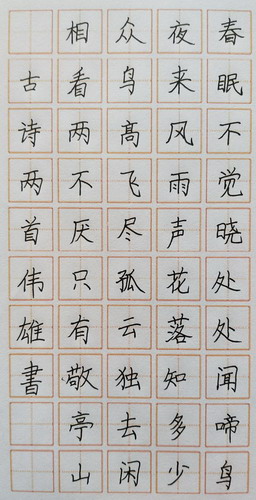 春眠不觉晓处处闻啼鸟
夜来风雨声花落知多少
众鸟高飞尽孤云独去闲
相看两不厌只有敬亭山
古诗两首伟雄書